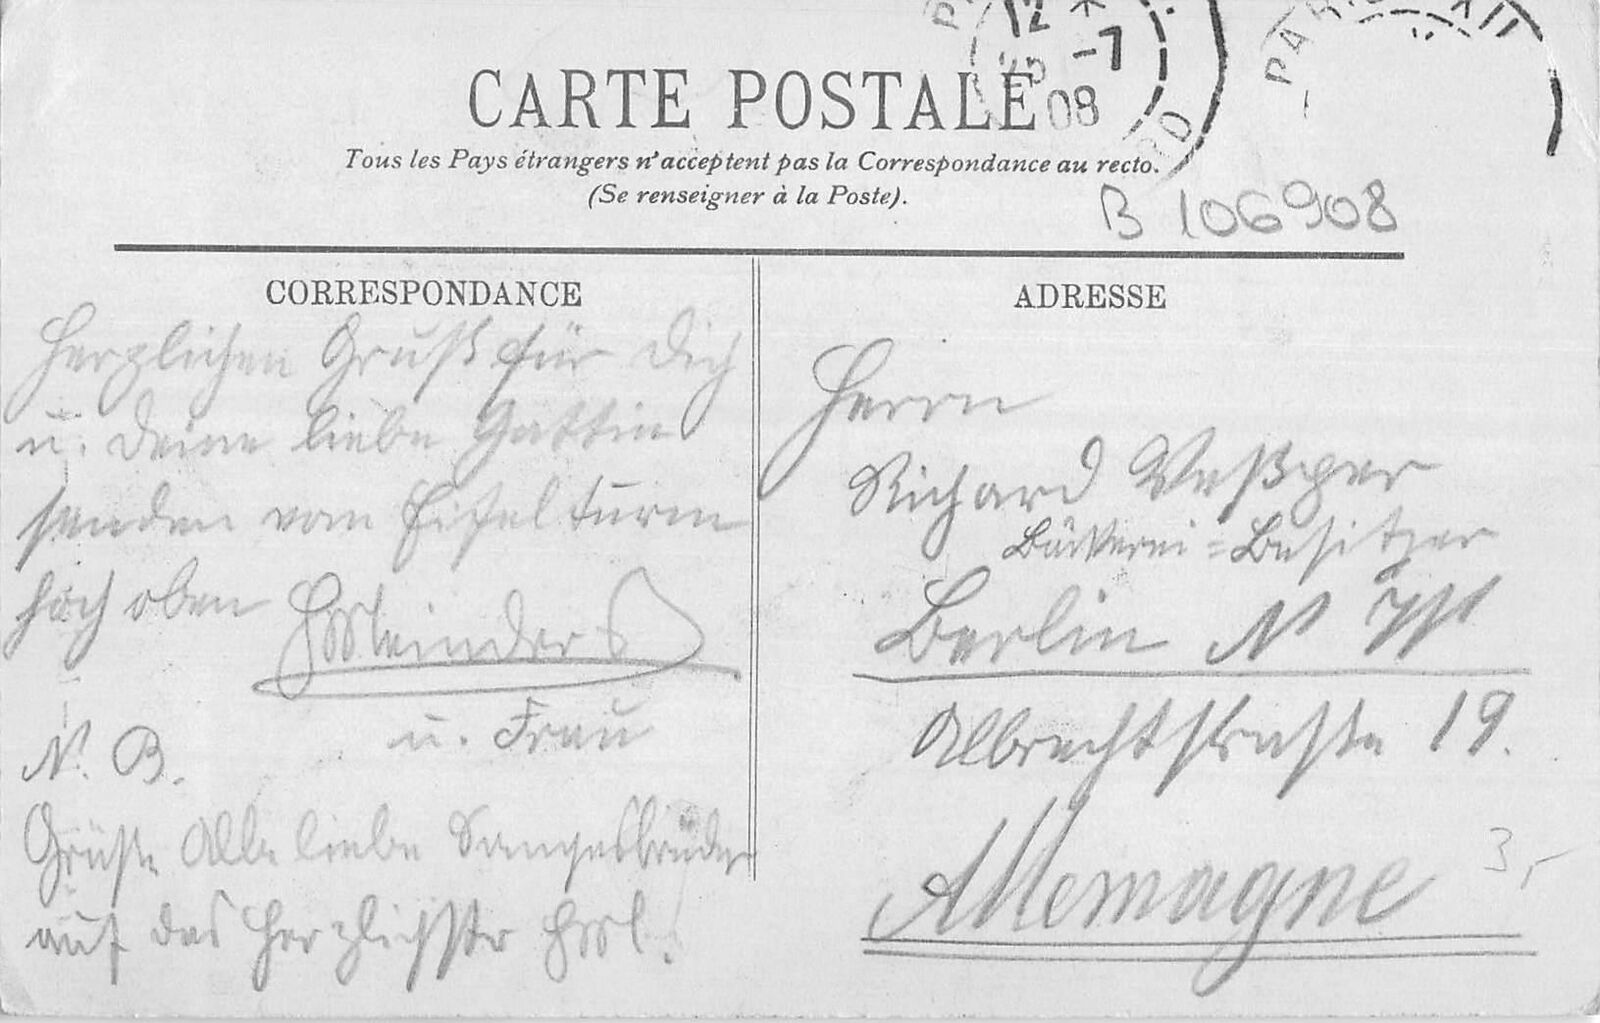 12
-7
08
PARIS XII
CARTE POSTALE
Tous les Pays étrangers n'acceptent pas la Correspondance au recto.
(Se renseigner à la Poste).
B 106908
CORRESPONDANCE
Herzlichen Gruß für Dich
u. Deine liebe Gattin
senden vom Eifelturm
hoch oben HMeinders
u. Frau
N. B.
Grüße Alle liebe Sangesbrüder
auf das Herzlichste
ADRESSE
Herrn
Richard Veßper
Bäckerei=Besitzer
Berlin N
Albrechtstraße 19.
Allemagne
3,-